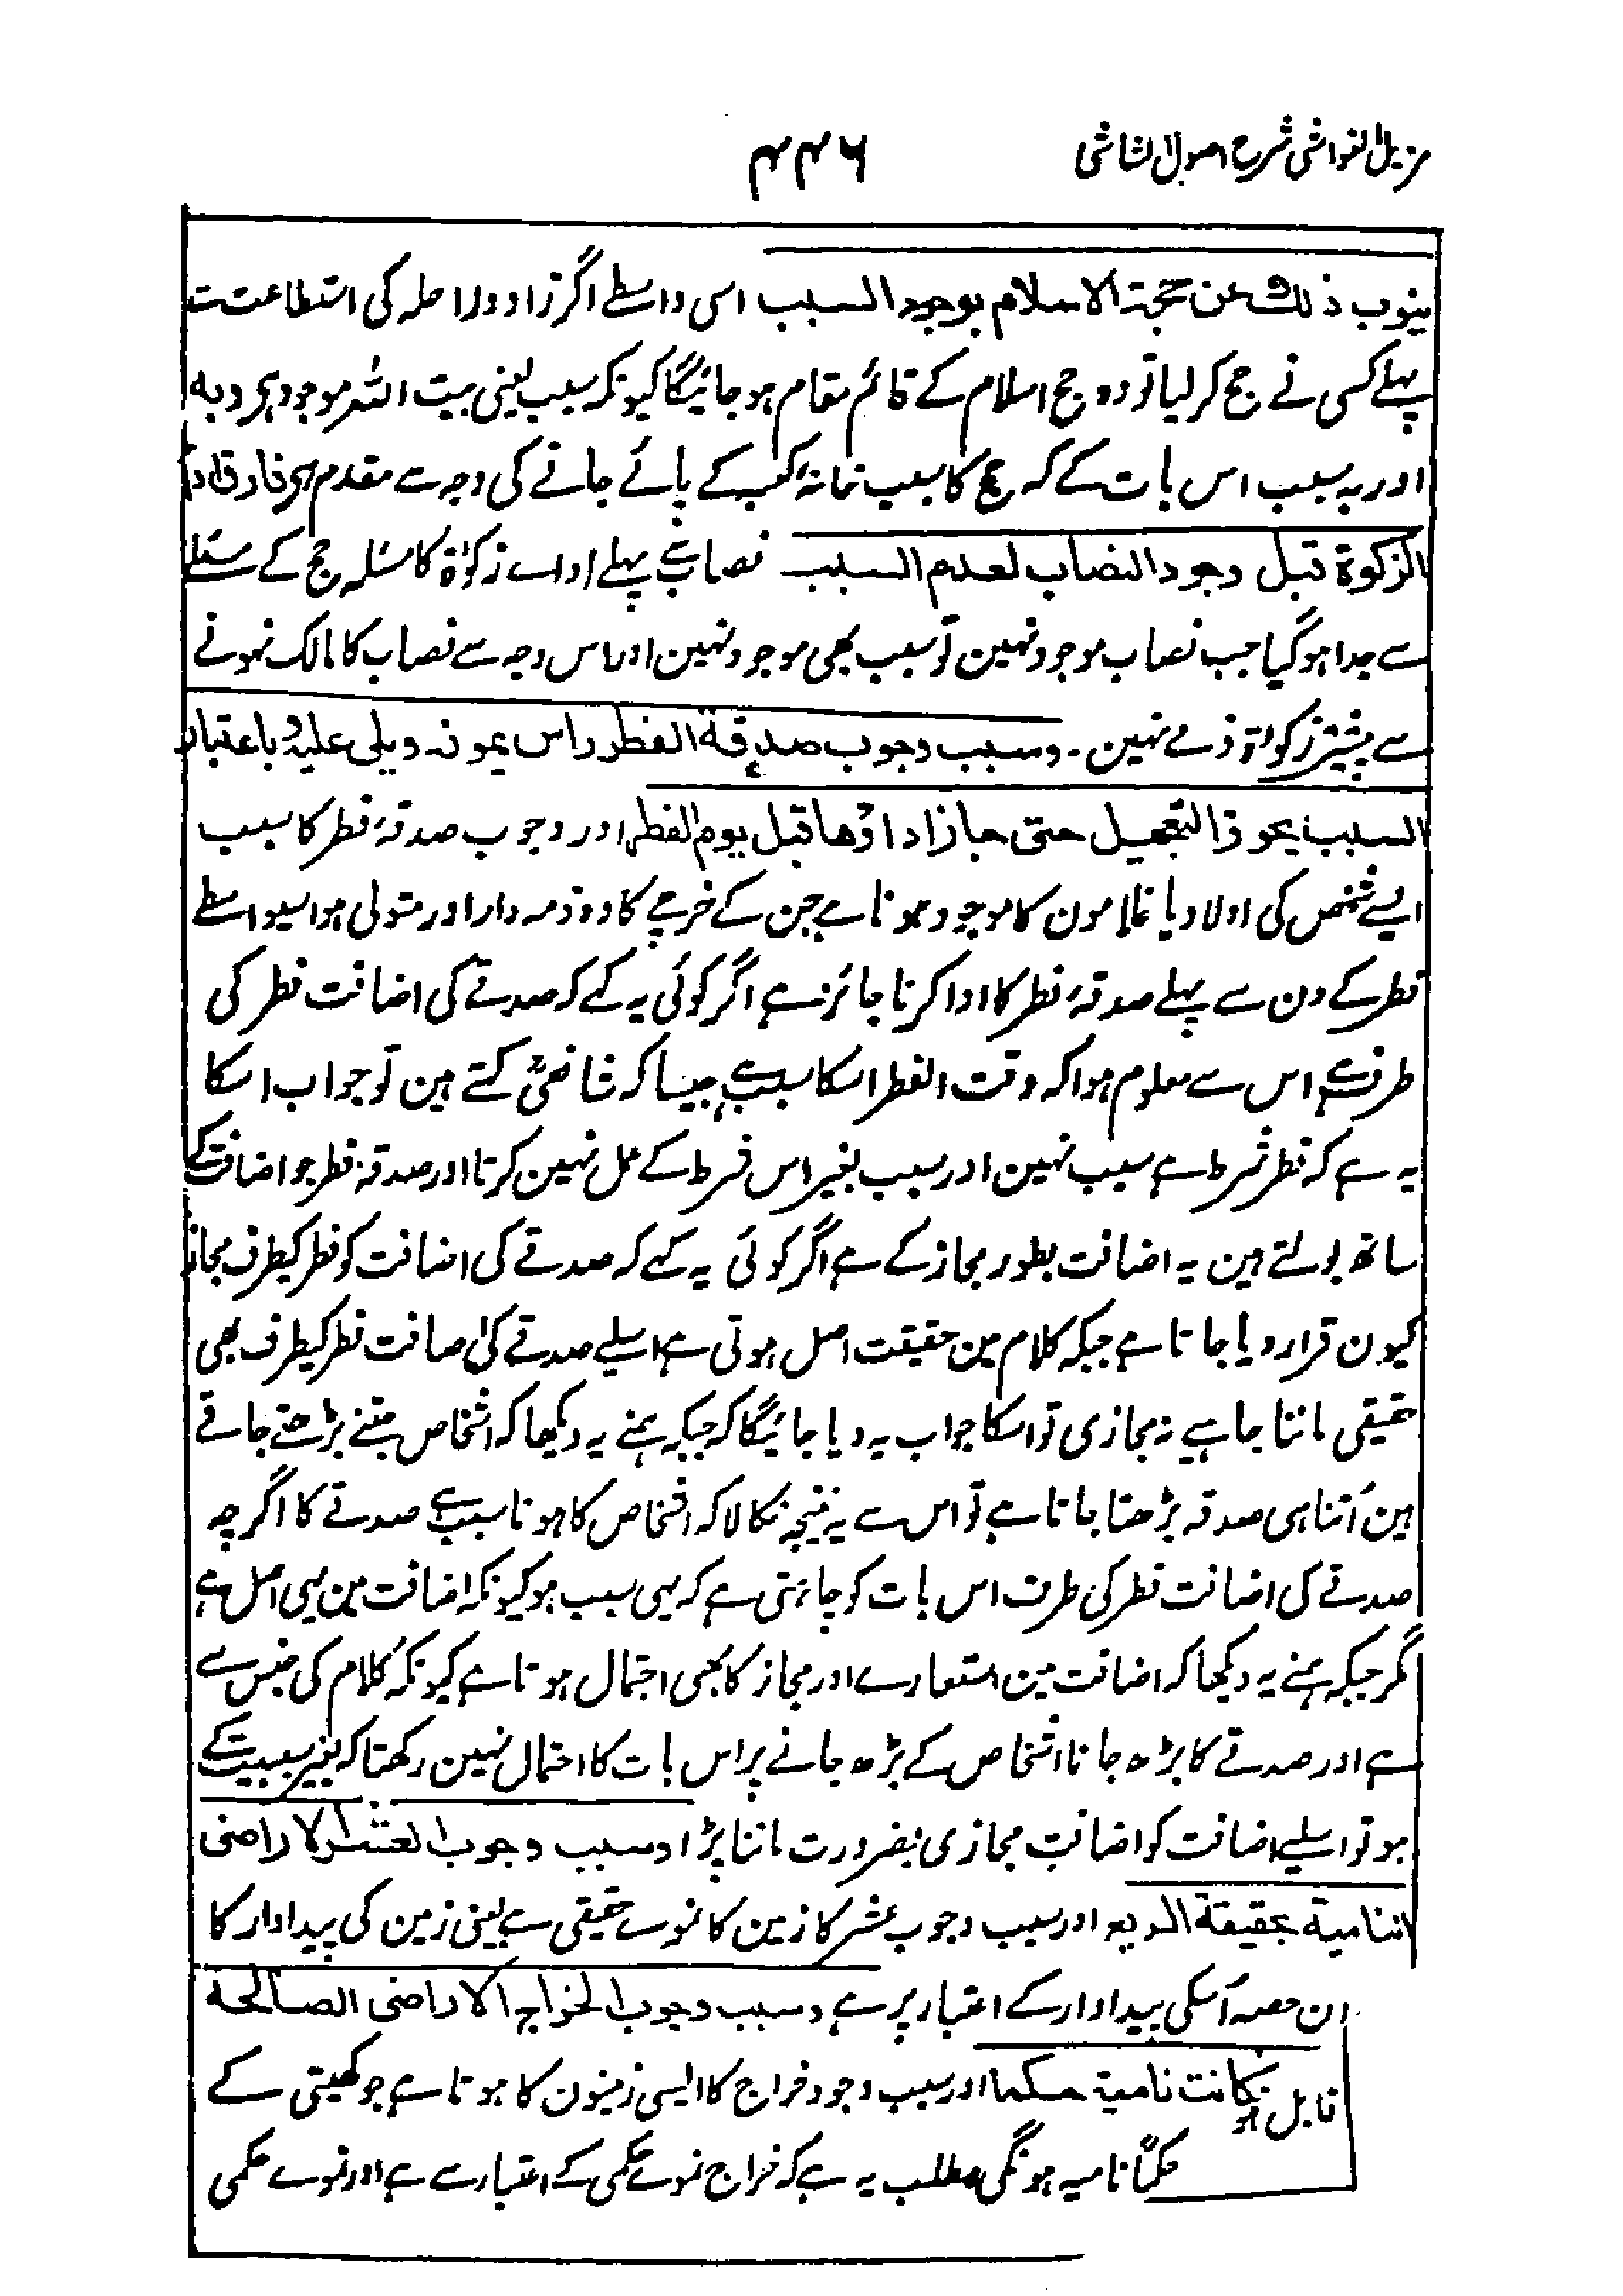 مزیل الغواشی شرح اصول الشاشی
۴۴۶
ینوب ذلک عن حجۃ الاسلام بوجود السبب اسی واسطے اگر زاد وراحلہ کی استطاعت سے
پہلے کسی نے حج کر لیا تو وہ حج اسلام کے قائم مقام ہو جائیگا کیونکہ سبب یعنی بیت اللہ موجود ہی وبہ
اور بہ سبب اس بات کے کہ حج کا سبب خانۂ کعبہ کے پائے جانے کی وجہ سے مقدم ہی فارق اداء
الزکوۃ قبل وجود النصاب لعدم السبب نصاب سے پہلے اداے زکوٰۃ کا مسئلہ حج کے مسئلے
سے جدا ہو گیا جب نصاب موجود نہین تو سبب بھی موجود نہین اور اس وجہ سے نصاب کا مالک نہونے
سے پیشتر زکوٰۃ ذمے نہین۔ وسبب وجوب صدقۃ الفطر راس یمونہ ویلی علیہ وباعتبار
السبب یجوز التعجیل حتی جاز اداؤھا قبل یوم الفطر اور وجوب صدقۂ فطر کا سبب
ایسے شخص کی اولاد یا غلامون کا موجود ہونا ہے جن کے خرچے کا وہ ذمہ دار اور متولی ہو اسیواسطے
فطر کے دن سے پہلے صدقۂ فطر کا ادا کرنا جائز ہے اگر کوئی یہ کہے کہ صدقے کی اضافت فطر کی
طرف ہے اس سے معلوم ہوا کہ وقت الفطر اسکا سبب ہے جیسا کہ شافعیؒ کہتے ہین تو جواب اسکا
یہ ہے کہ فطر شرط ہے سبب نہین اور سبب بغیر اس شرط کے عمل نہین کرتا اور صدقۂ فطر جو اضافت کے
ساتھ بولتے ہین یہ اضافت بطور مجاز کے ہے اگر کوئی یہ کہے کہ صدقے کی اضافت کو فطر کیطرف مجاز
کیون قرار دیا جاتا ہے جبکہ کلام مین حقیقت اصل ہوتی ہے اسلیے صدقے کی اضافت فطر کیطرف بھی
حقیقی ماننا چاہیے نہ مجازی تو اسکا جواب یہ دیا جائیگا کہ جبکہ ہمنے یہ دیکھا کہ اشخاص جتنے بڑھتے جاتے
ہین اُتنا ہی صدقہ بڑھتا جاتا ہے تو اس سے یہ نتیجہ نکالا کہ اشخاص کا ہونا سبب ہے صدقے کا اگرچہ
صدقے کی اضافت فطر کی طرف اس بات کو چاہتی ہے کہ یہی سبب ہو کیونکہ اضافت مین یہی اصل ہے
مگر جبکہ ہمنے یہ دیکھا کہ اضافت مین استعارے اور مجاز کا بھی احتمال ہوتا ہے کیونکہ کلام کی جنس سے
ہے اور صدقے کا بڑھ جانا اشخاص کے بڑھ جانے پر اس بات کا احتمال نہین رکھتا کہ بغیر سببیت کے
ہو تو اسلیے اضافت کو اضافتِ مجازی بضرورت ماننا پڑا وسبب وجوب العشر الاراضی
النامیۃ بحقیقۃ الریع اور سبب وجوب عشر کا زمین کا نموے حقیقی ہے یعنی زمین کی پیداوار کا
ان حصہ اُسکی پیداوار کے اعتبار پر ہے وسبب وجوب الخراج الاراضی الصالحۃ
قابل ہو فکانت نامیۃ حکما اور سبب وجود خراج کا ایسی زمینون کا ہوتا ہے جو کھیتی کے
حکماً نامیہ ہونگی مطلب یہ ہے کہ خراج نموے حکمی کے اعتبار سے ہے اور نموے حکمی